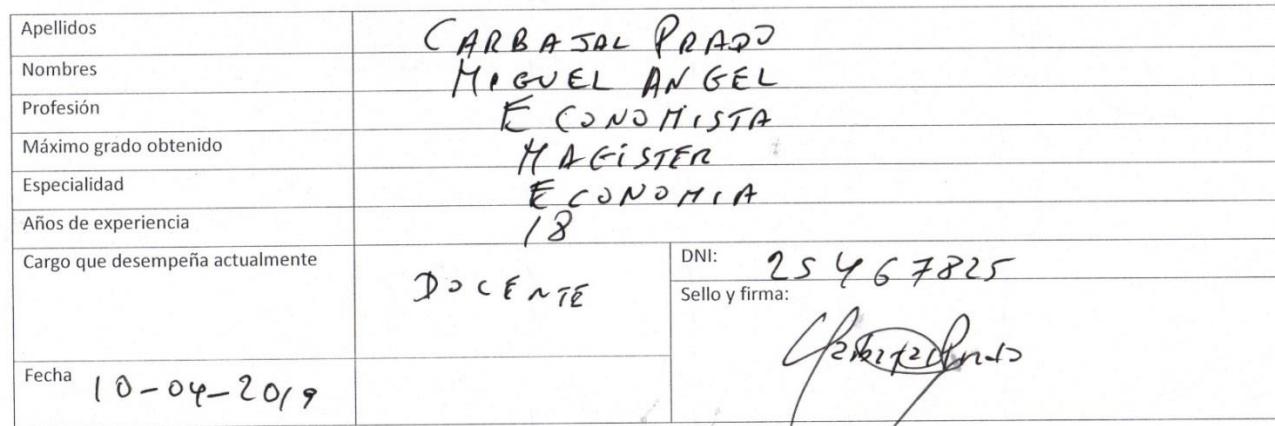 Apellidos CARBAJAL PRADO
Nombres MIGUEL ANGEL
Profesión ECONOMISTA
Máximo grado obtenido MAGíSTER
Especialidad ECONOMIA
Años de experiencia 18
Cargo que desempeña actualmente DOCENTE
DNI: 25467825
Sello y firma:
Fecha 10-04-2019